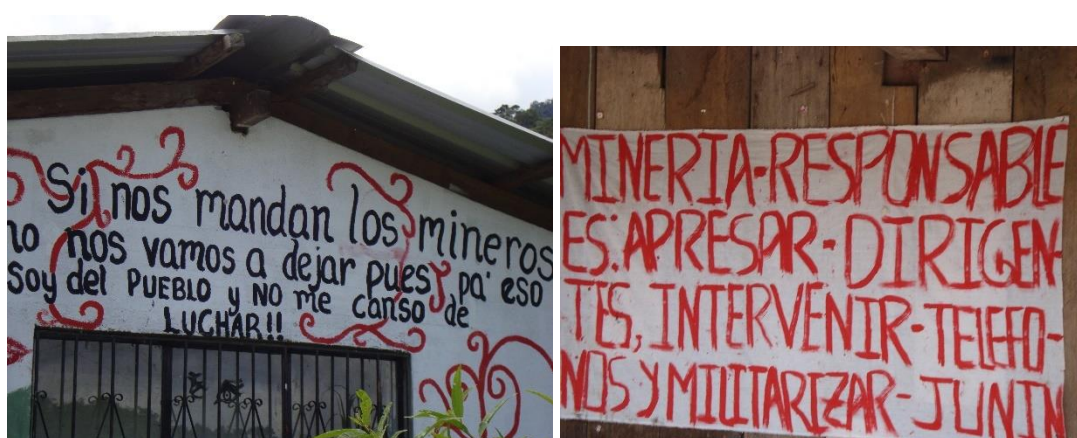 Si nos mandan los mineros
no nos vamos a dejar pues pa' eso
soy del PUEBLO y NO me canso de
LUCHAR!!
MINERIA-RESPONSABLE
ES: APRESAR-DIRIGEN-
TES, INTERVENIR-TELEFO-
NOS Y MILITARIZAR-JUNIN